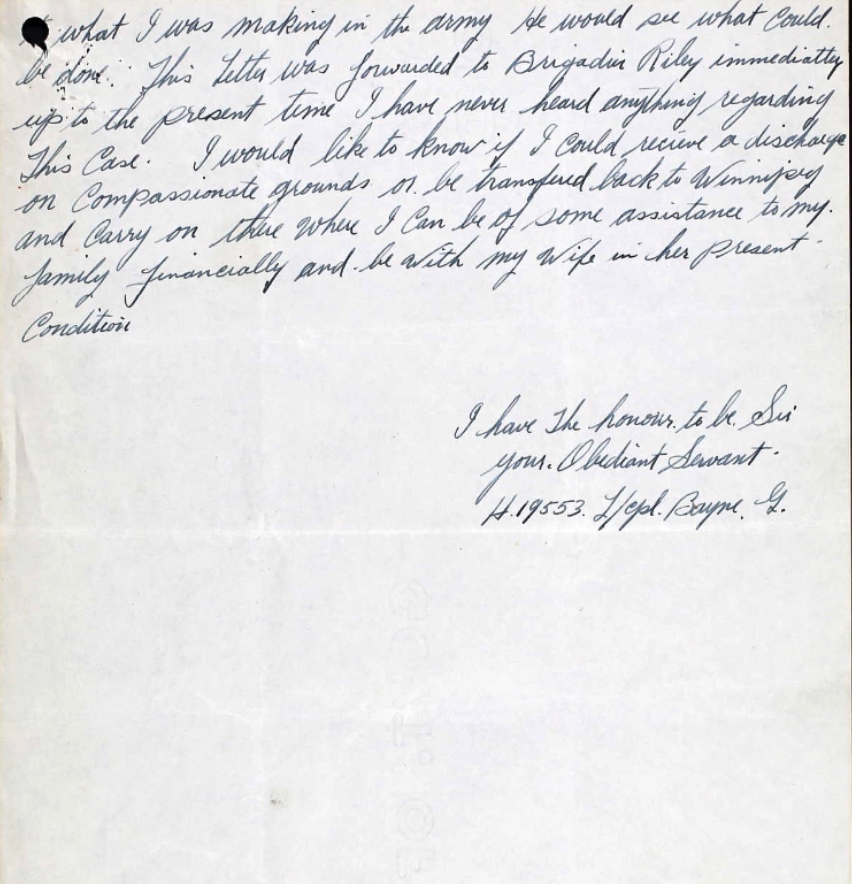 what I was making in the army He would see what could.
be done. This Letter was forwarded to Brigadier Riley immediatley
up to the present time I have never heard anything regarding
This Case. I would like to know if I could recieve a discharge
on Compassionate grounds or be transfered back to Winnipeg
and Carry on there where I Can be of some assistance to my.
family financially and be with my Wife in her present
Condition
I have The honour to be Sir
your. Obediant Servant.
H.19553. L/cpl. Bayne. G.